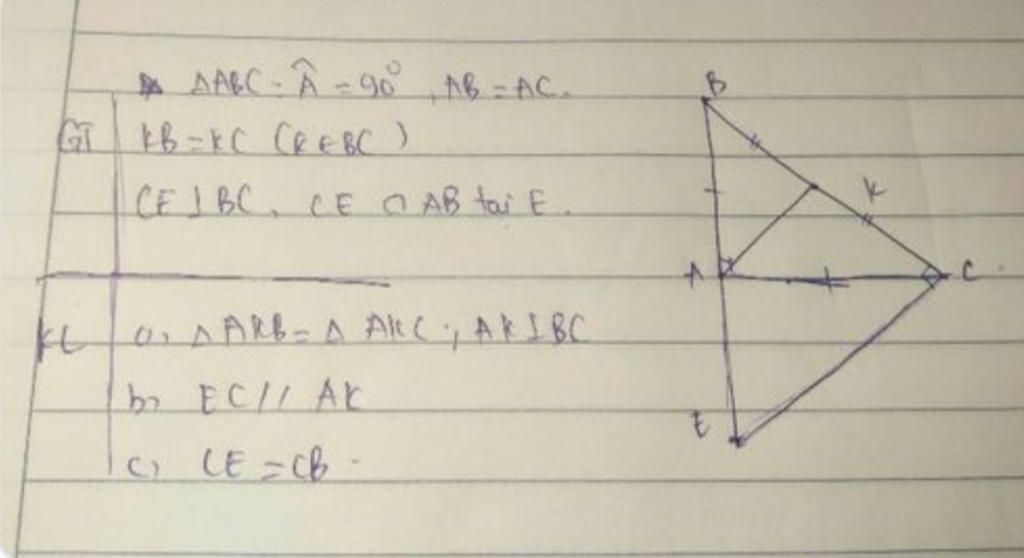 ΔABC: Â = 90°, AB = AC.
GT
KB = KC (K ∈ BC)
CE ⊥ BC, CE ∩ AB tại E.
KL
a, ΔAKB = ΔAKC; AK ⊥ BC
b, EC // AK
c, CE = CB.
B
K
A
C
E